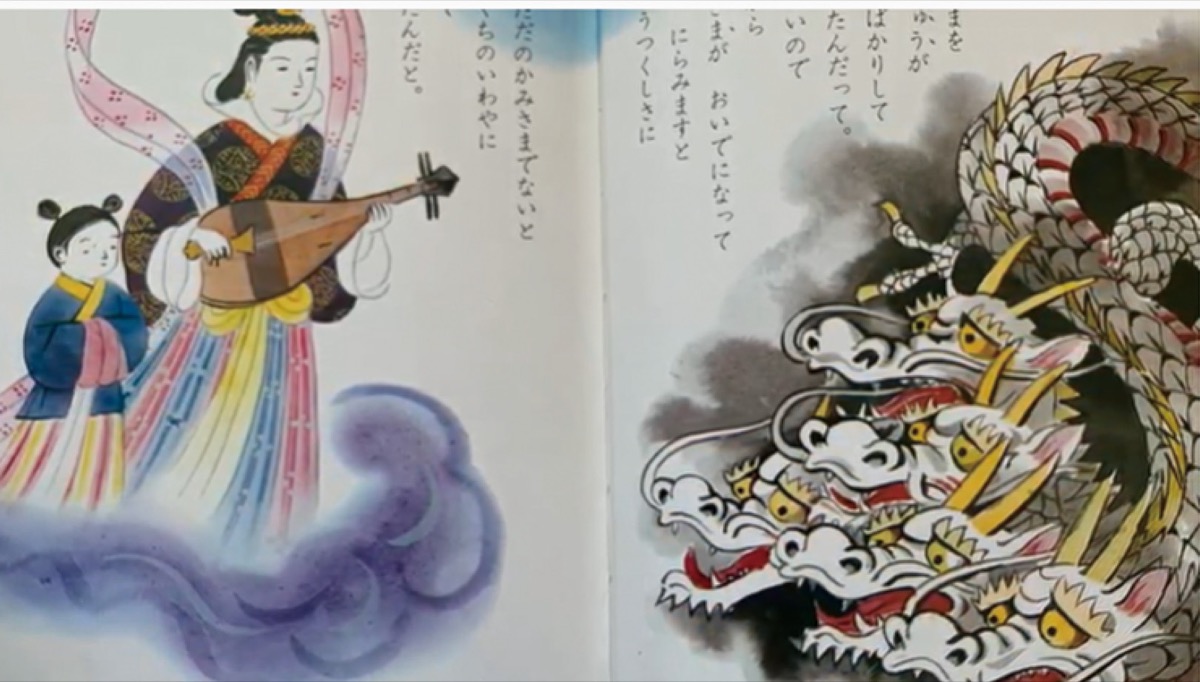 まを
ゅうが
ばかりして
たんだって。
いので
ら
まが　おいでになって
にらみますと
うつくしさに
だのかみさまでないと
ちのいわやに
んだと。